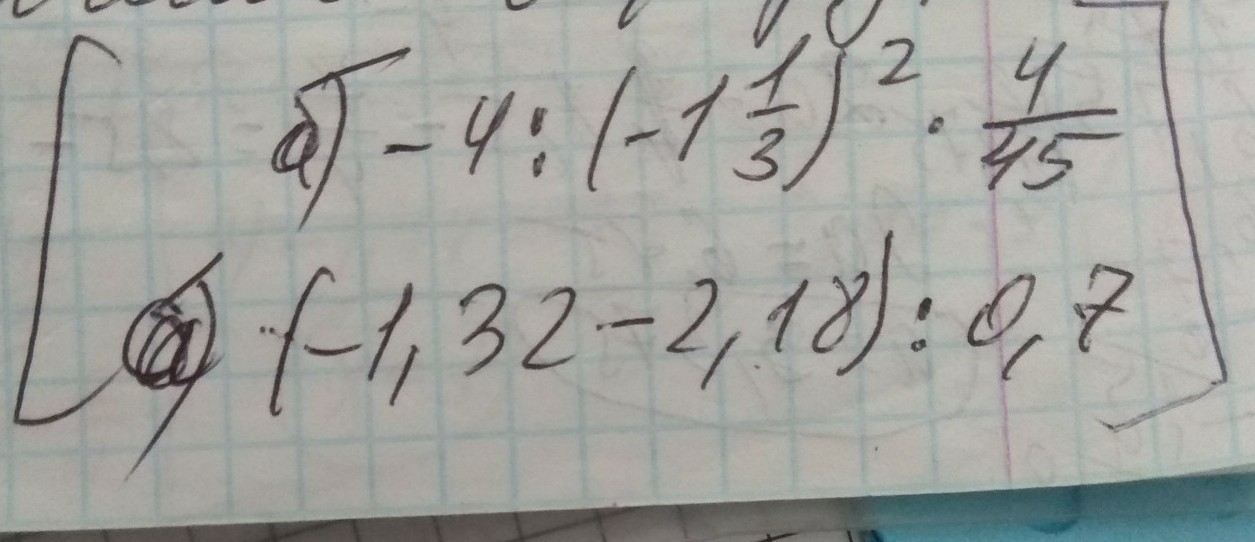 а) - 4 : (-1 1/3)² · 4/45
(-1,32 - 2,18) : 0,7